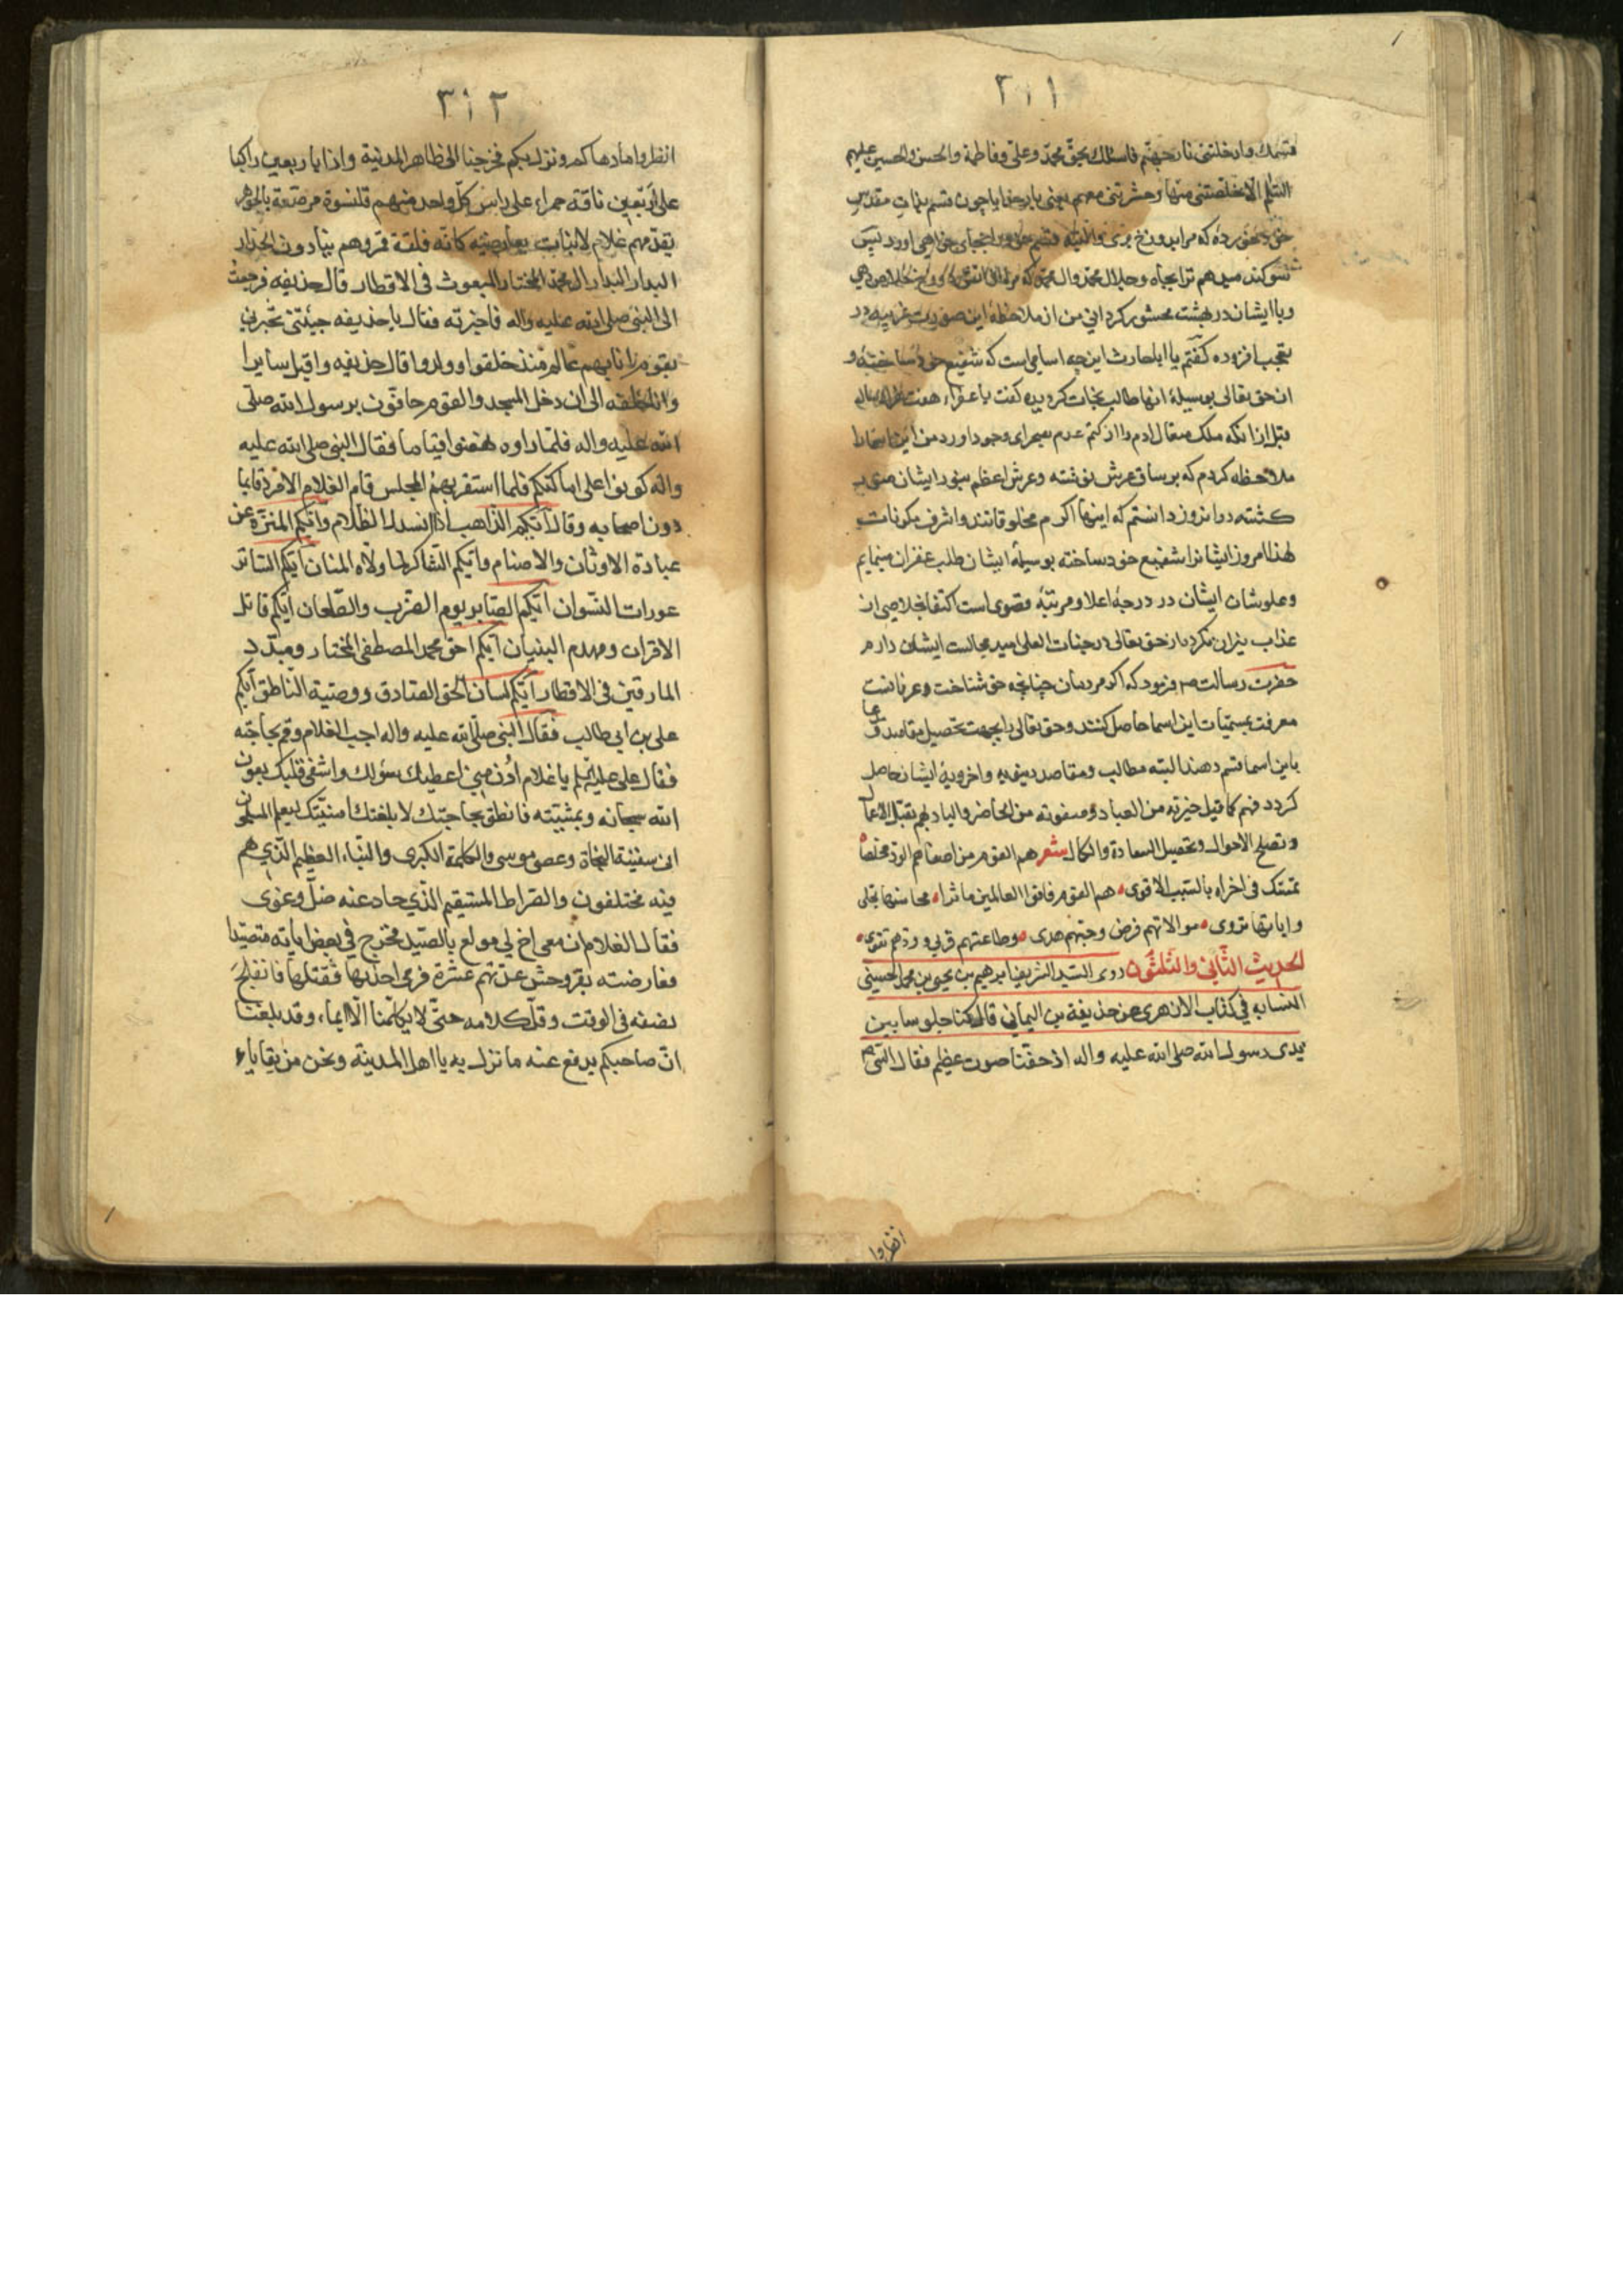 ٣١١
قسمك وادخلتنی نار جهنم فاسئلك بحق محمد وعلی وفاطمة والحسن والحسین علیهم
السلم الا خلصتنی منها وحشرتنی معهم یعنی بار خدایا چون قسم بذات مقدس
خود خورده که مرا بدوزخ بری والبته قسم خود را بجای خواهی اورد پس
سوکند میدهم ترا بجاه وجلال محمد وال محمد که مرا از دوزخ خلاص دهی
وبا ایشان در بهشت محشور کردانی من از ملاحظهٔ این صورت غریبه در
تعجب افزوده کفتم یا ابا الحارث این چه اسامی است که شفیع خود ساختهٔ و
از حق تعالی بوسیلهٔ انها طالب نجات کردیده کفت یا عفراء هفت هزار سال
قبل از انکه ملک متعال ادم را از کتم عدم بصحرای وجود اورد من این اسما را
ملاحظه کردم که بر ساق عرش نوشته وعرش اعظم بنور ایشان منور
کشته در انروز دانستم که اینها اکرم مخلوقاتند واشرف مکونات
لهذا امروز ایشانرا شفیع خود ساخته بوسیلهٔ ایشان طلب غفران مینمایم
وعلو شان ایشان در درجهٔ اعلا ومرتبهٔ قصوی است اکتفا بخلاصی از
عذاب نیران نکرده از حق تعالی در جنات العلی امید مجالست ایشان دارم
حضرت رسالت ص فرمود که اکر مردمان چنانچه حق شناخت وعرفانست
معرفت بمسمیات این اسما حاصل کنند وحق تعالی را بجهت تحصیل مقاصد
باین اسما قسم دهند البته مطالب ومقاصد دینیه واخرویهٔ ایشان حاصل
کردد فهم کما قیل خیرته من العباد وصفوته من الحاضر والباد بهم تقبل الاعمال
وتصلح الاحوال وتحصیل السعادة والکمال شعر هم القوم من اصفاهم الود مخلصا
تمسک فی اخراه بالسبب الاقوی هم القوم فاقوا العالمین ماثرا محاسنها تجلی
وایاتها تروی موالاتهم فرض وحبهم هدی وطاعتهم قربی وودهم تقوی
الحدیث الثانی والثلثون روی السید الشریف ابرهیم بن یحیی بن محمد الحسینی
النسابه فی کتاب الازهری عن حذیفة بن الیمانی قال کنا جلوسا بین
یدی رسول الله صلی الله علیه واله اذ حفتنا صوت عظیم فقال النبی ص
انظروا
٣١٢
انظروا ما دهاکم ونزل بکم فخرجنا الی ظاهر المدینة واذا باربعین راکبا
علی اربعین ناقة حمراء علی راس کل واحد منهم قلنسوة مرصعة بالجوهر
یقدمهم غلام لا نبات بعارضیه کانه فلقة قمر وهم ینادون الحذار
البدار البدار ال محمد المختار المبعوث فی الاقطار قال حذیفه فرجعت
الی النبی صلی الله علیه واله فاخبرته فقال یا حذیفه جئتنی تخبرنی
بقوم انا بهم عالم منذ خلقوا وولدوا قال حذیفه واقبل سایرا
وانا خلفه الی ان دخل المسجد والقوم حافون برسول الله صلی
الله علیه واله فلما راوه نهضوا قیاما فقال النبی صلی الله علیه
واله کونوا علی اماکنکم فلما استقر بهم المجلس قام الغلام الامرد قایما
دون اصحابه وقال ایکم الذاهب اذا انسدل الظلام وایکم المنزه عن
عبادة الاوثان والاصنام وایکم الشاکر لما ولاه المنان ایکم الساتر
عورات النسوان ایکم الصابر یوم الضرب والطعان ایکم قاتل
الاقران ومهدم البنیان ایکم اخو محمد المصطفی المختار ومبدد
المارقین فی الاقطار ایکم لسان الحق الصادق ووصیة الناطق ایکم
علی بن ابی طالب فقال النبی صلی الله علیه واله اجب الغلام وقم بحاجته
فقال علی علیه السلم یا غلام ادن منی اعطیک سؤلک واشفی قلبک بعون
الله سبحانه وبمشیته فانطق بحاجتک لابلغتك امنیتک لیعلم المسلمون
انی سفینة النجاة وعصی موسی والکلمة الکبری والنباء العظیم الذی هم
فیه مختلفون والصراط المستقیم الذی حاد عنه ضل وغوی
فقال الغلام ان معی اخ لی مولع بالصید فخرج فی بعض ایامه متصیدا
فعارضته بقر وحش عدتهم عشرة فرمی احدیها فقتلها فانفلج
نصفه فی الوقت وقل کلامه حتی لا یکلمنا الا ایماء وقد بلغنا
ان صاحبکم یدفع عنه ما نزل به یا اهل المدینة ونحن من بقایاء